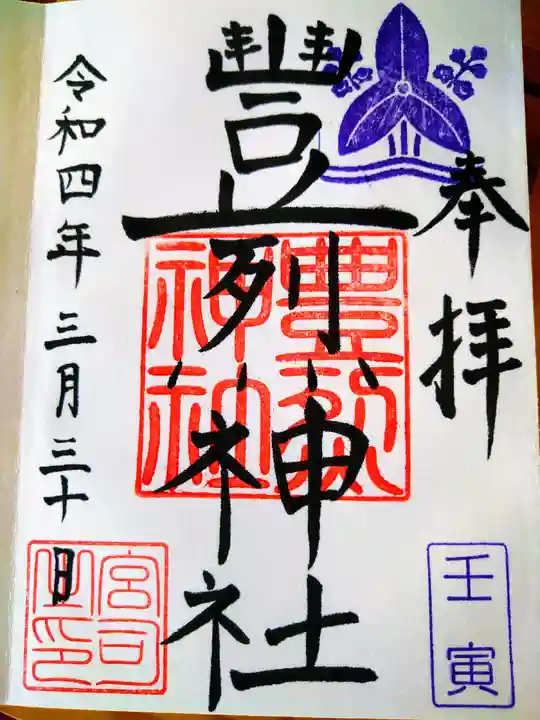 奉拝
豐烈神社
令和四年三月三十日
壬寅
豊烈神社
宮司之印